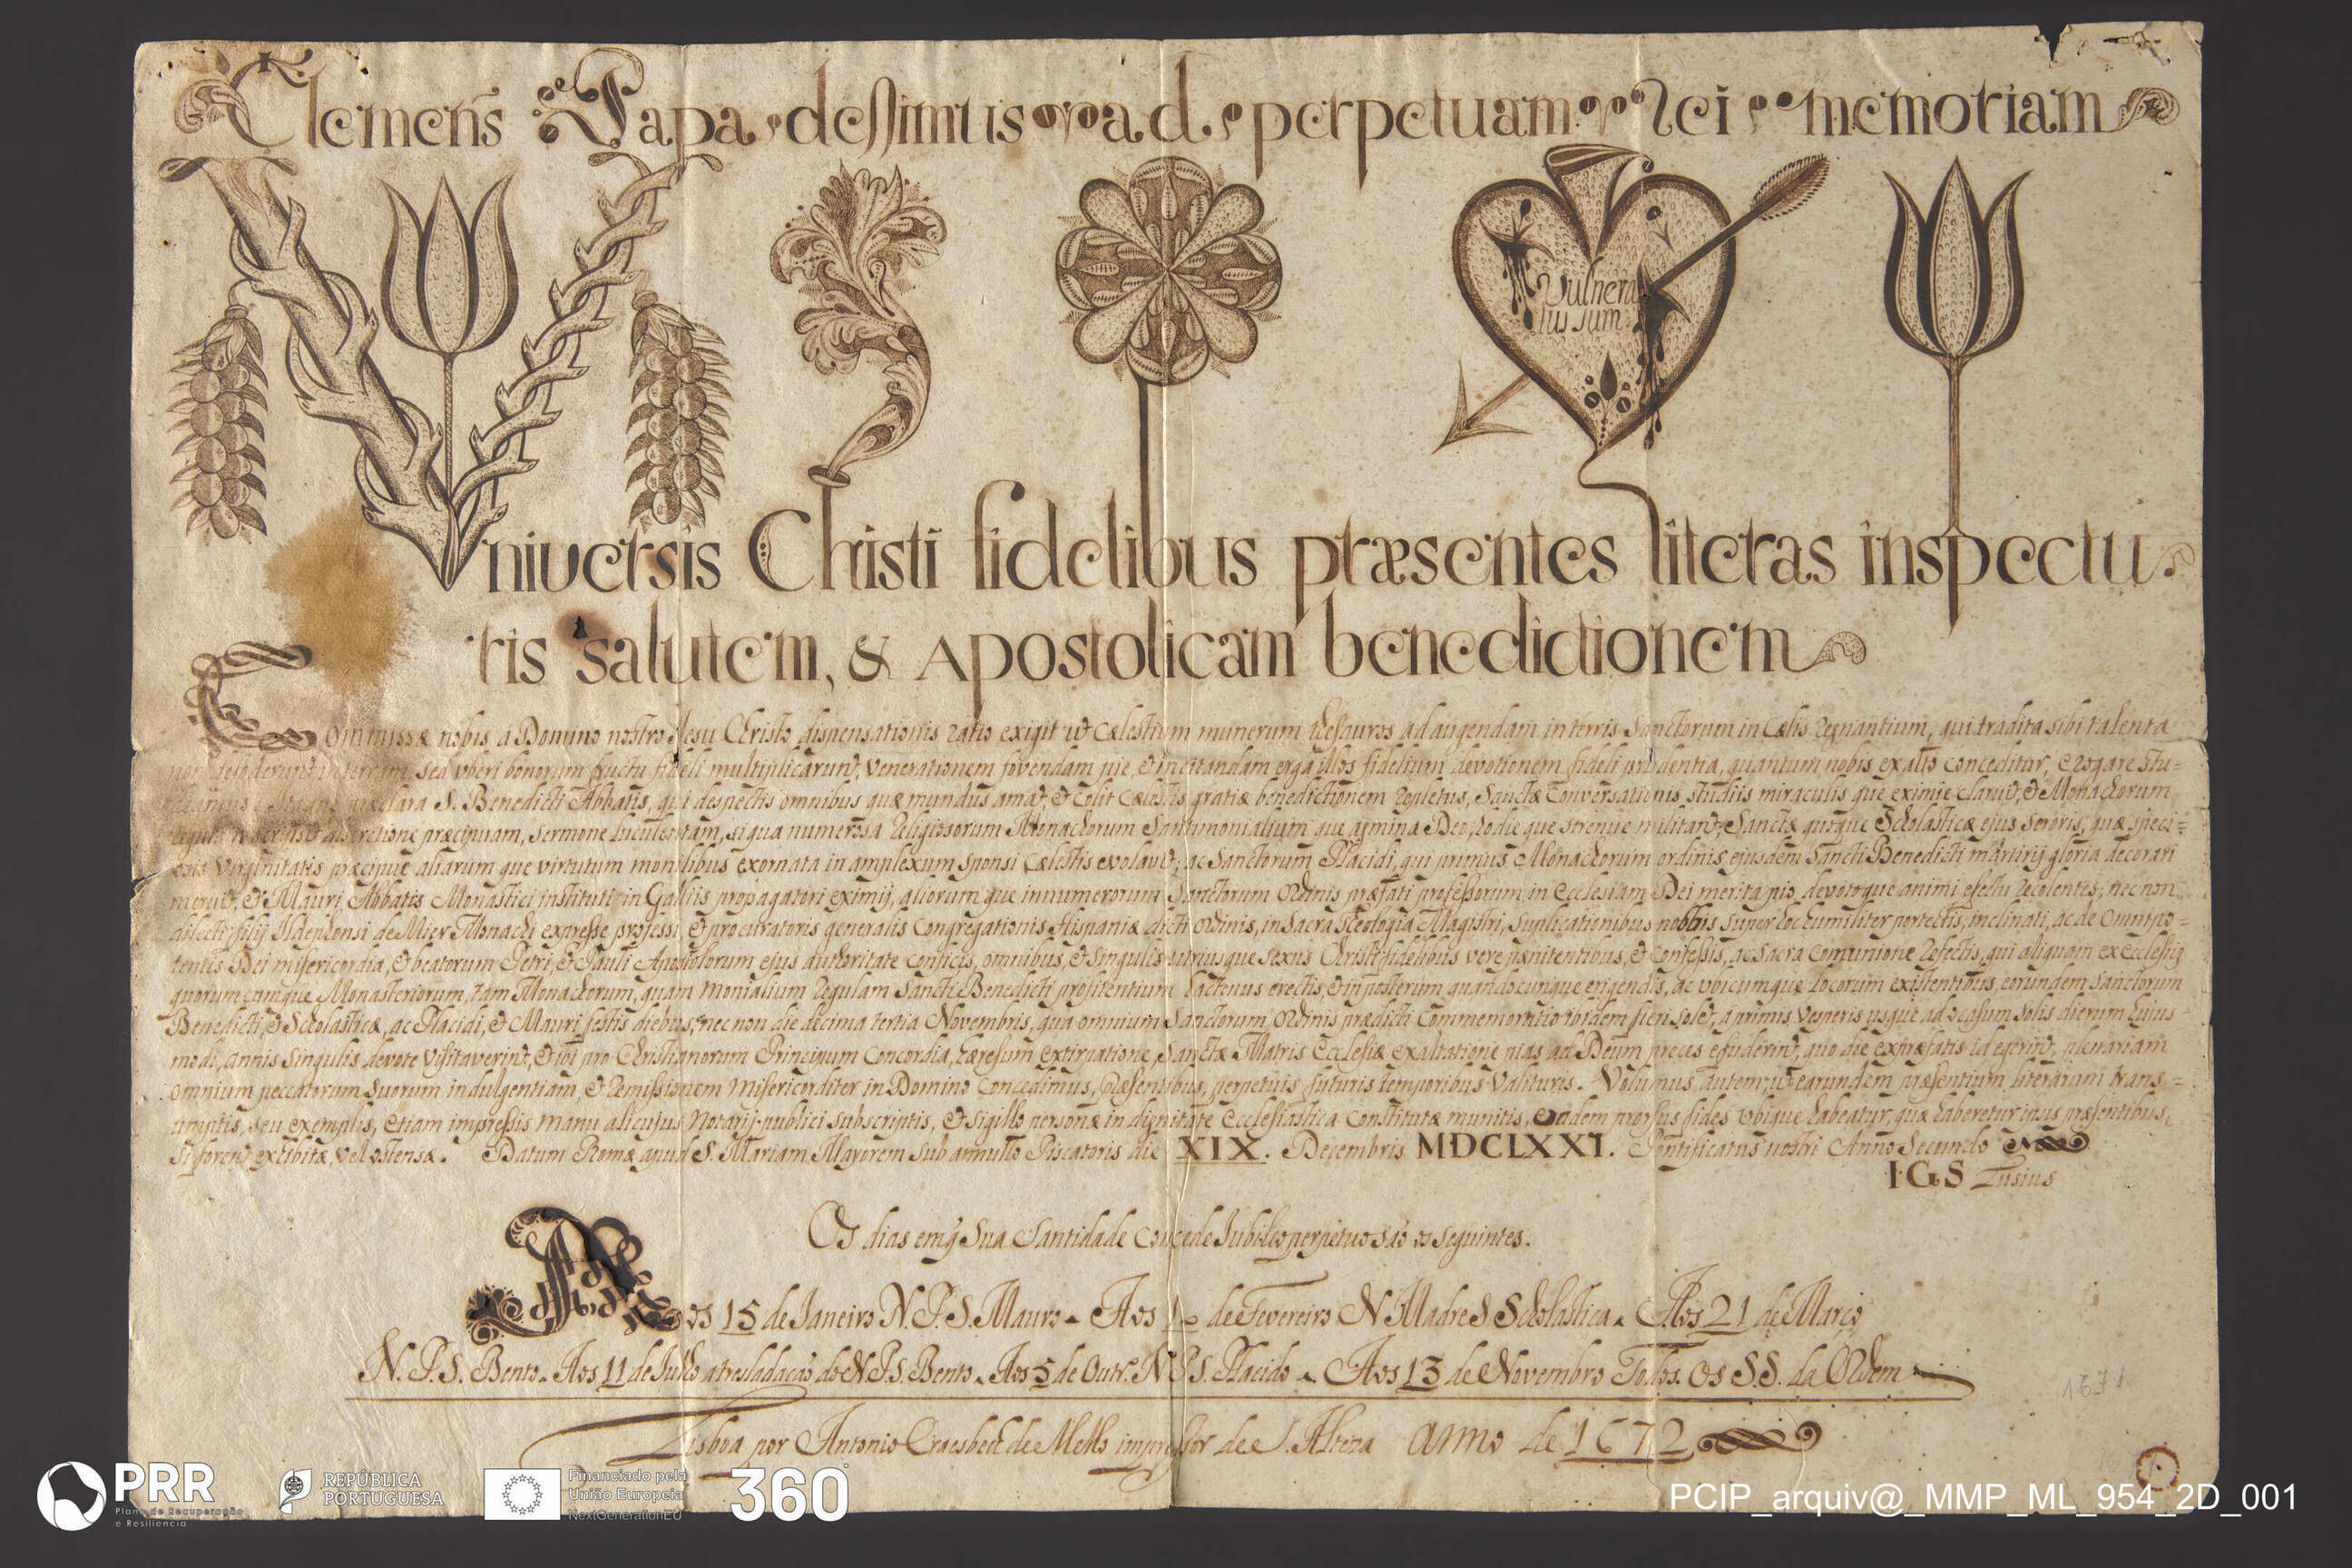 Clemens Papa dessimus ad perpetuam Rei memoriam
Vulnera
tus sum
Universis Christi fidelibus præsentes literas inspectu
ris salutem, & Apostolicam benedictionem
Commissæ nobis a Domino nostro Jesu Christo dispensationis ratio exigit ut Cælestium munerum thesauros ad augendam in terris Sanctorum in Cælis Regnantium, qui tradita sibi talenta
non in terram, sed uberi bonorum fructu fideli multiplicarunt, venerationem fovendam pie, & incitandam erga illos fidelium devotionem fideli prudentia, quantum nobis ex alto conceditur, erogare stu=
S. Benedicti Abbatis, qui despectis omnibus quæ mundus amat, et colit Cælestis gratiæ benedictionem repletus, Sanctæ Conversationis studiis miraculis que eximie claruit, & Monachorum
discretione præcipuam, sermone luculentam, si qua numerosa Religiosorum Monachorum Santimonialium que agmina Deo hodie que strenue militant, Sanctæ quoque Scholasticæ ejus Sororis, quæ speci=
osis Virginitatis præcipue aliarum que virtutum monilibus exornata in amplexum sponsi Cælestis evolavit; ac Sanctorum Placidi, qui primus Monachorum ordinis ejusdem Sancti Benedicti martirij gloria decorari
meruit, & Mauri Abbatis Monastici instituti in Galliis propagatori eximij, aliorum que innumerorum Sanctorum Ordinis præfati professorum in Ecclesiam Dei merita pio, devotoque animi efectu Recolentes; nec non
dilecti filij Ildephonsi de Mier Monachi expresse professi & procuratoris generalis Congregationis Hispaniæ dicti Ordinis, in Sacra Theologia Magistri, suplicationibus nobis super hoc humiliter porrectis, inclinati, ac de Omnipo=
tentis Dei misericordia, & beatorum Petri, & Pauli Apostolorum ejus authoritate confisis, omnibus, & singulis utriusque sexus Christi fidelibus vere pænitentibus, & Confessis, ac Sacra Comunione Refectis, qui aliquam ex Ecclesiis
quorumcumque Monasteriorum, tam Monachorum, quam Monialium Regulam Sancti Benedicti profitentium hactenus erectis, & in posterum quandocunque erigendis, ac ubicumque locorum existentibus, eorundem Sanctorum
Benedicti, & Scholasticæ, ac Placidi, & Mauri festis diebus, nec non die decima tertia Novembris, qua omnium Sanctorum Ordinis prædicti Commemoratio ibidem fieri solet, a primis Vesperis usque ad ocasum solis dierum hujus=
modi, annis singulis devote visitaverint, & ibi pro Christianorum Principum Concordia, hæresum extirpatione, Sanctæ Matris Ecclesiæ exaltatione pias ad Deum preces efuderint, quo die ex præfatis id egerint, plenariam
Omnium peccatorum suorum indulgentiam, & Remissionem misericorditer in Domino Concedimus, Præsentibus, perpetuis futuris temporibus Valituris. Volumus autem, ut earundem præsentium literarum trans=
umptis, seu exemplis, etiam impressis manu alicujus Notarij publici subscriptis, & sigillo personæ in dignitate Ecclesiastica Constitutæ munitis, eadem prorsus fides ubique habeatur, quæ haberetur ipsis præsentibus,
si forent exibitæ, vel ostensæ. Datum Romæ apud S. Mariam Mayorem sub annullo Piscatoris die XIX. Decembris MDCLXXI. Pontificatus nostri Anno Secundo
I·G·S Tusius
Os dias em q̃ Sua Santidade Concede Jubileo perpetuo saõ os seguintes.
Aos 15 de Janeiro N. P. S. Mauro. Aos 10 de Fevereiro N Madre S Scholastica. Aos 21 de Março
N. P. S. Bento. Aos 11 de Julho a tresladaçaõ do N. P. S. Bento. Aos 5 de Outr.º N P S. Placido. Aos 13 de Novembro Todos Os S.S. da Ordem
Lisboa por Antonio Craesbeck de Mello impressor de S. Alteza anno de 1672
1671
PRR
Plano de Recuperação
e Resiliência
REPÚBLICA
PORTUGUESA
Financiado pela
União Europeia
NextGenerationEU
360°
PCIP_arquiv@_MMP_ML_954_2D_001